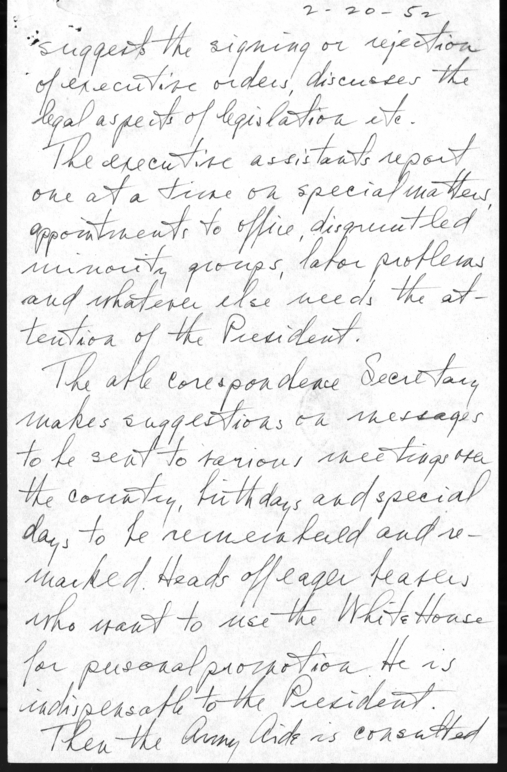 2-20-52
suggests the signing or rejection
of executive orders, discusses the
legal aspects of legislation etc.
The executive assistants report
one at a time on special matters,
appointments to office, disgruntled
minority groups, labor problems
and whatever else needs the at-
tention of the President.
The able corespondence Secretary
makes suggestions on messages
to be sent to various meetings over
the country, birthdays and special
days to be remembered and re-
marked. Heads off eager beavers
who want to use the White House
for personal promotion. He is
indispensable to the President.
Then the Army Aide is consulted